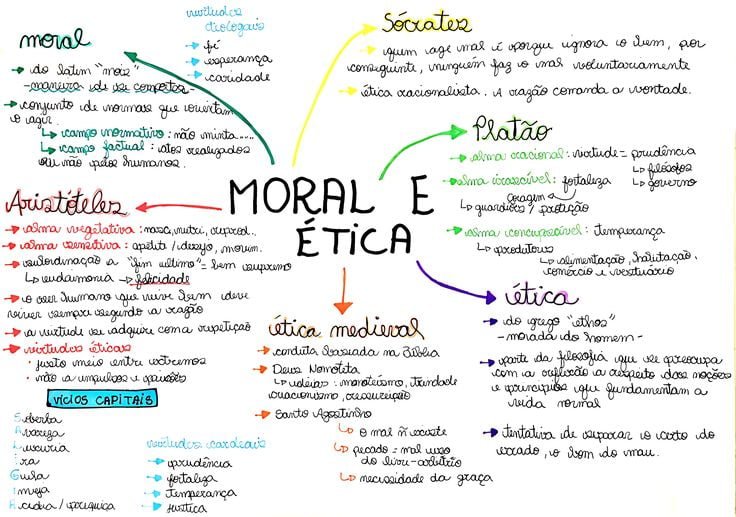 MORAL E
ÉTICA
moral
do latim "mois"
- maneira de se comportar -
conjunto de normas que orientam
o agir.
campo normativo: não minta....
campo factual: atos realizados
ou não pelos humanos.
virtudes
teologais
fé
esperança
caridade
Sócrates
quem age mal é porque ignora o bem, por
conseguinte, ninguém faz o mal voluntariamente
ética racionalista. A razão comanda a vontade.
Platão
alma racional: virtude = prudência
filósofos
governo
alma irascível: fortaleza
coragem
guardiões / proteção
alma concupiscível: temperança
produtores
alimentação, habitação,
comércio e vestuário
Aristóteles
alma vegetativa: nasc, nutri, reprod..
alma sensitiva: apetite / desejo, movim.
subordinação a "fim último" = bem supremo
eudaimonia → felicidade
o ser humano que vive bem deve
viver sempre segundo a razão
a virtude se adquire com a repetição
virtudes éticas
· justo meio entre extremos
· não a impulsos e paixões
VÍCIOS CAPITAIS
Soberba
Avareza
Luxúria
Ira
Gula
Inveja
Acídia / preguiça
virtudes cardeais
prudência
fortaleza
temperança
justiça
ética medieval
conduta baseada na Bíblia
Deus
ideias: monoteísmo, trindade
criacionismo, ressurreição
Santo Agostinho
o mal ñ existe
pecado = mal uso
do livre-arbítrio
necessidade da graça
ética
do grego "ethos"
- morada do homem -
parte da filosofia que se preocupa
com a reflexão a respeito das noções
e princípios que fundamentam a
vida normal
tentativa de separar o certo do
errado, o bom do mau.